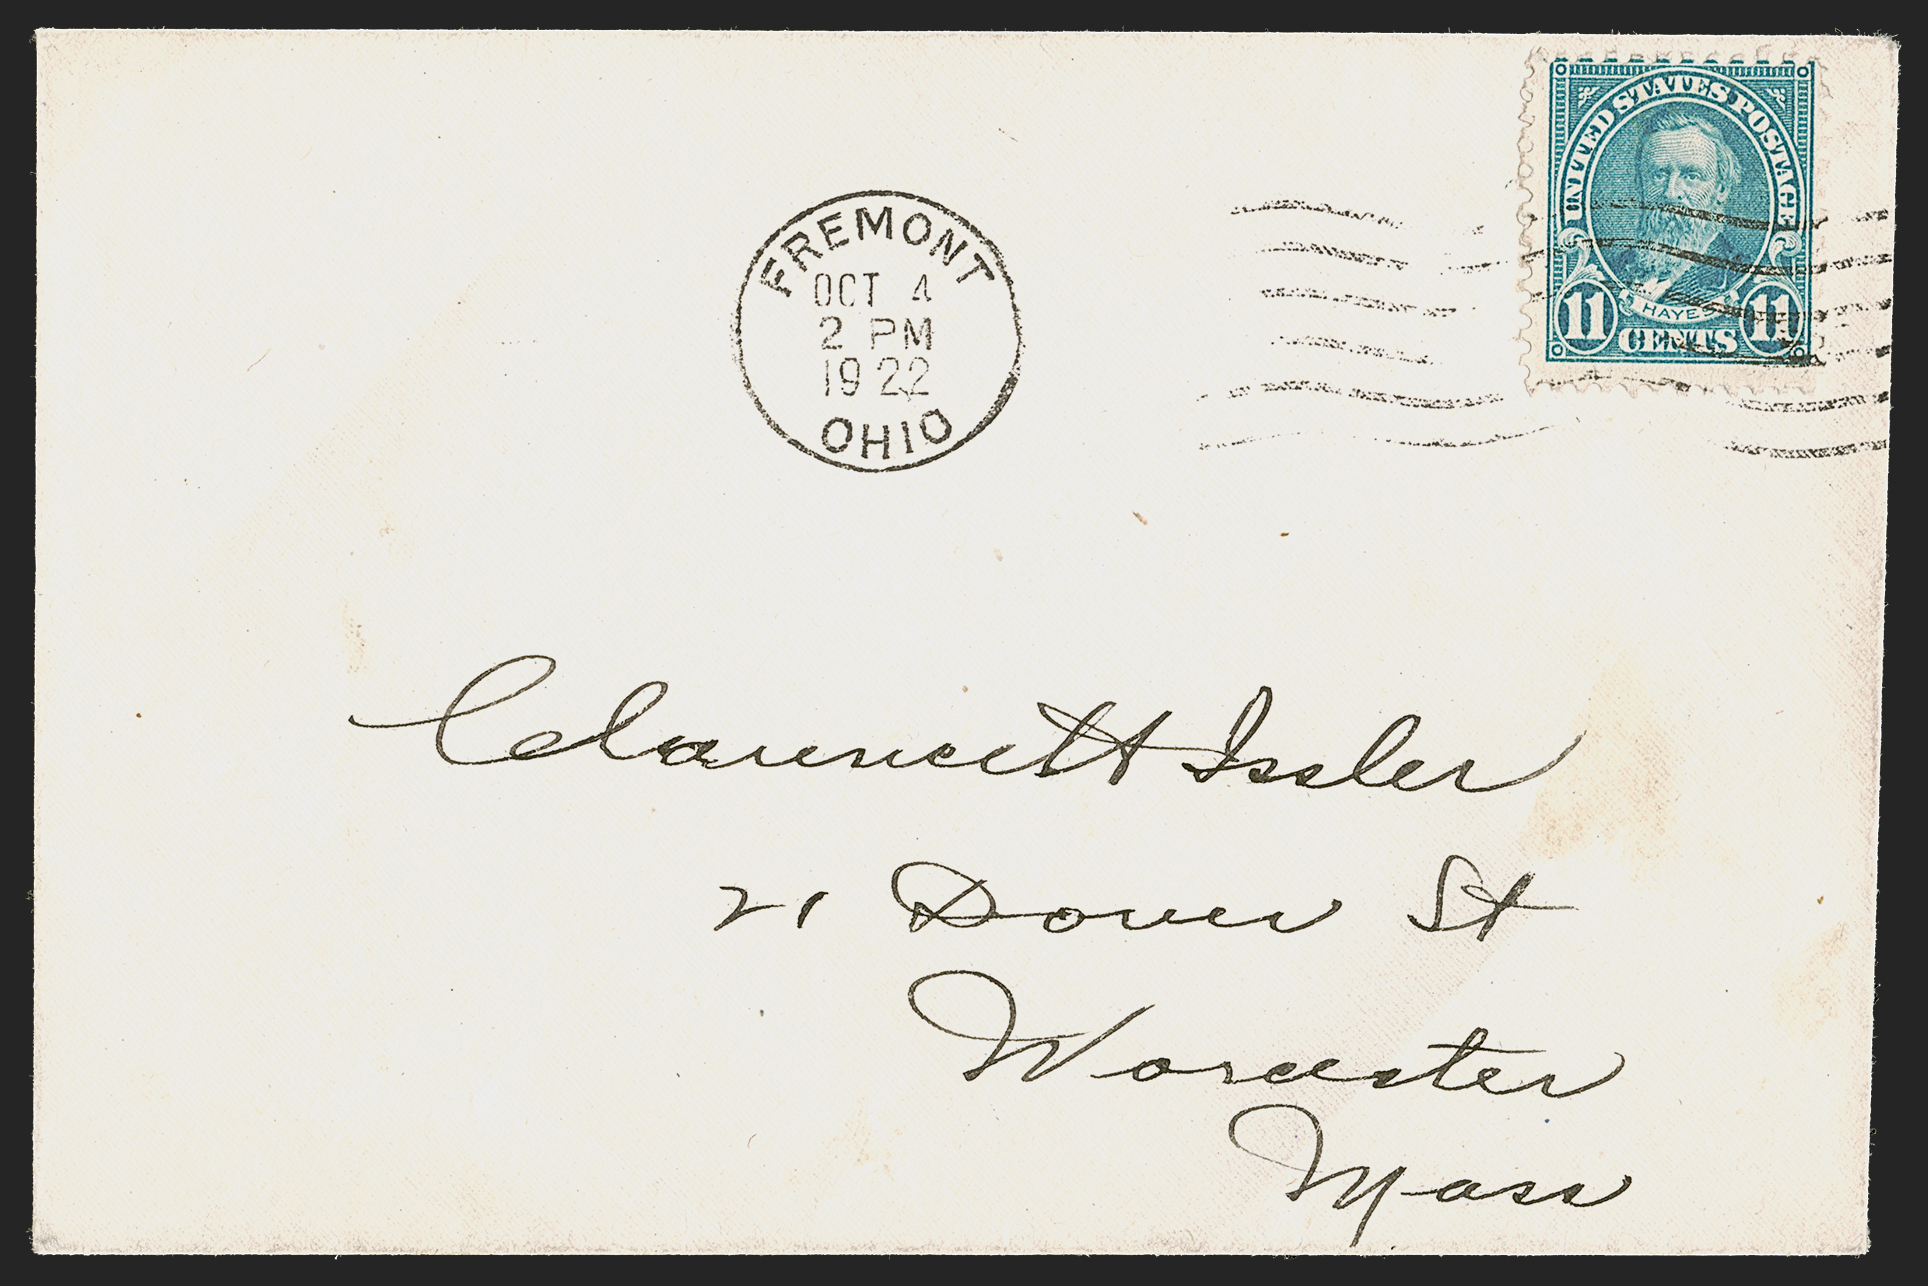 UNITED STATES POSTAGE
HAYES
11 CENTS 11
FREMONT
OCT 4
2 PM
1922
OHIO
Clarence H Issler
21 Dover St
Worcester
Mass